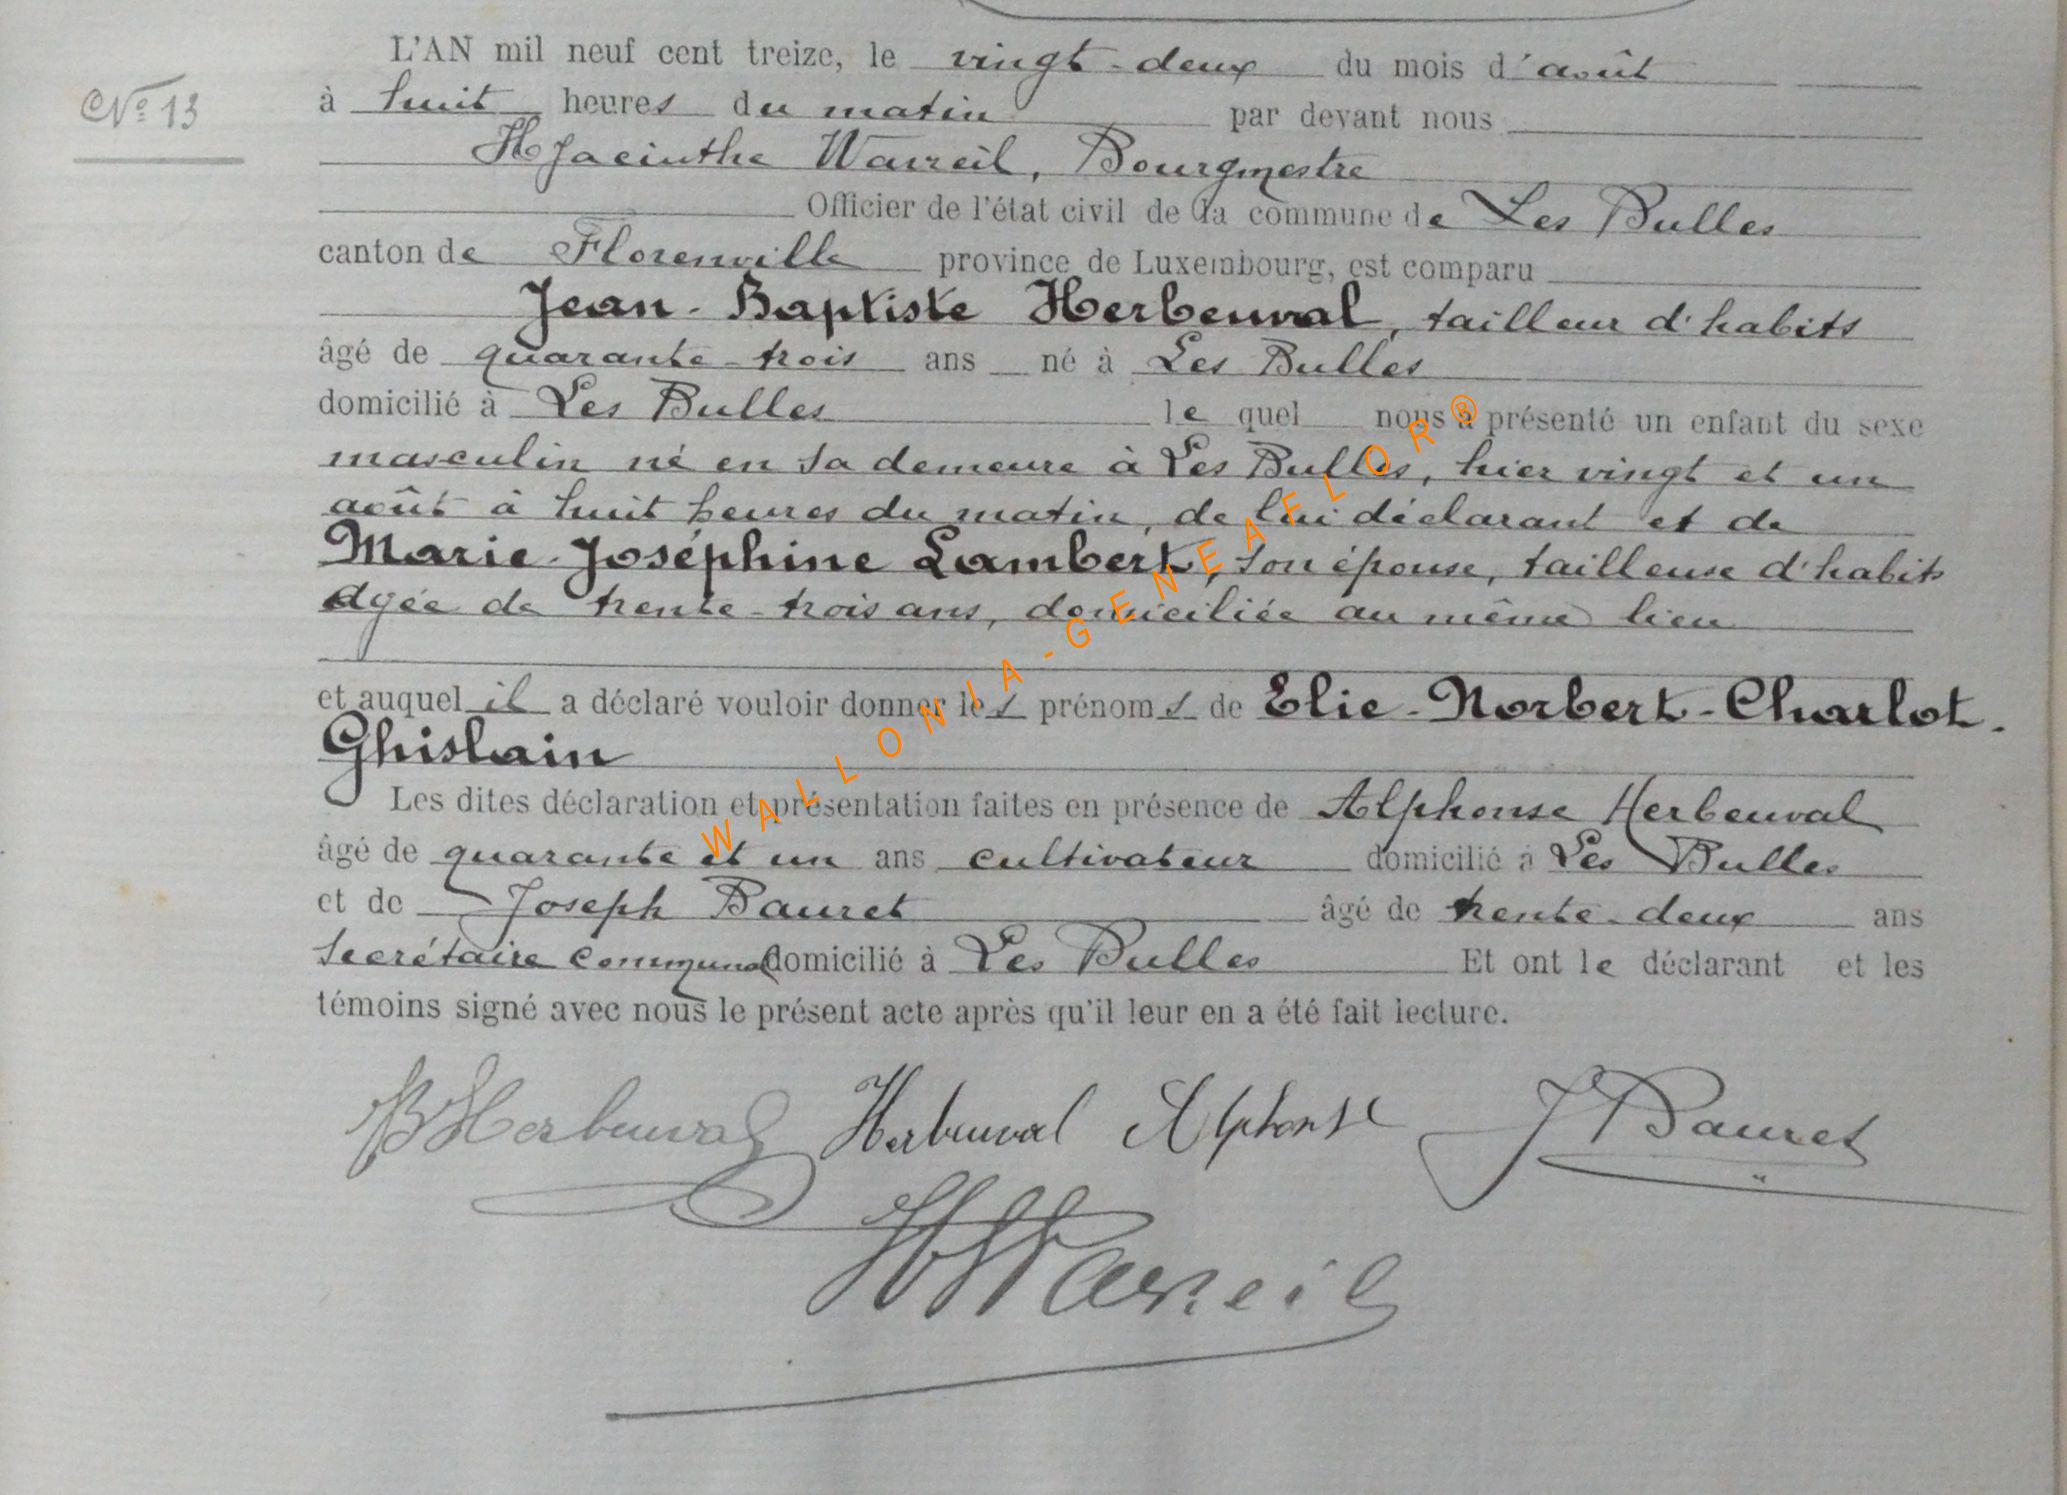 L'AN mil neuf cent treize, le vingt-deux du mois d'août
N° 13
à huit heures du matin par devant nous
Hyacinthe Warzeil, Bourgmestre
Officier de l'état civil de la commune de Les Bulles
canton de Florenville province de Luxembourg, est comparu
Jean-Baptiste Herbeuval, tailleur d'habits
âgé de quarante-trois ans né à Les Bulles
domicilié à Les Bulles le quel nous a présenté un enfant du sexe
masculin né en sa demeure à Les Bulles, hier vingt et un
août à huit heures du matin, de lui déclarant et de
Marie-Joséphine Lambert, son épouse, tailleuse d'habits
âgée de trente-trois ans, domiciliée au même lieu
et auquel il a déclaré vouloir donner les prénoms de Elie-Norbert-Charlot-
Ghislain
Les dites déclaration et présentation faites en présence de Alphonse Herbeuval
âgé de quarante et un ans cultivateur domicilié à Les Bulles
et de Joseph Bauret âgé de trente-deux ans
secrétaire communal domicilié à Les Bulles Et ont le déclarant et les
témoins signé avec nous le présent acte après qu'il leur en a été fait lecture.
JB Herbeuval Herbeuval Alphonse J Bauret
H Warzeil
WALLONIA-GENEALOR®